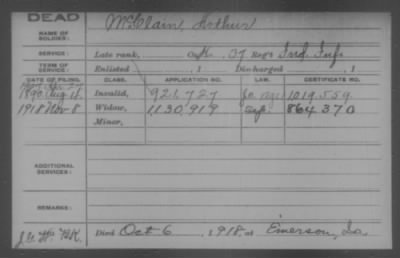 DEAD
McClain, Arthur
NAME OF
SOLDIER:
SERVICE: Late rank, Co. 37 Reg't Ind. Inf.
TERM OF
SERVICE: Enlisted , 1 Discharged , 1
DATE OF FILING. CLASS. APPLICATION NO. LAW. CERTIFICATE NO.
1890 Aug Invalid, 921,727 1019,559
1918 Nov 8 Widow, 1,130,919 864370
Minor,
ADDITIONAL
SERVICES:
REMARKS:
Died Oct 6 , 1918, at Emerson, Ia